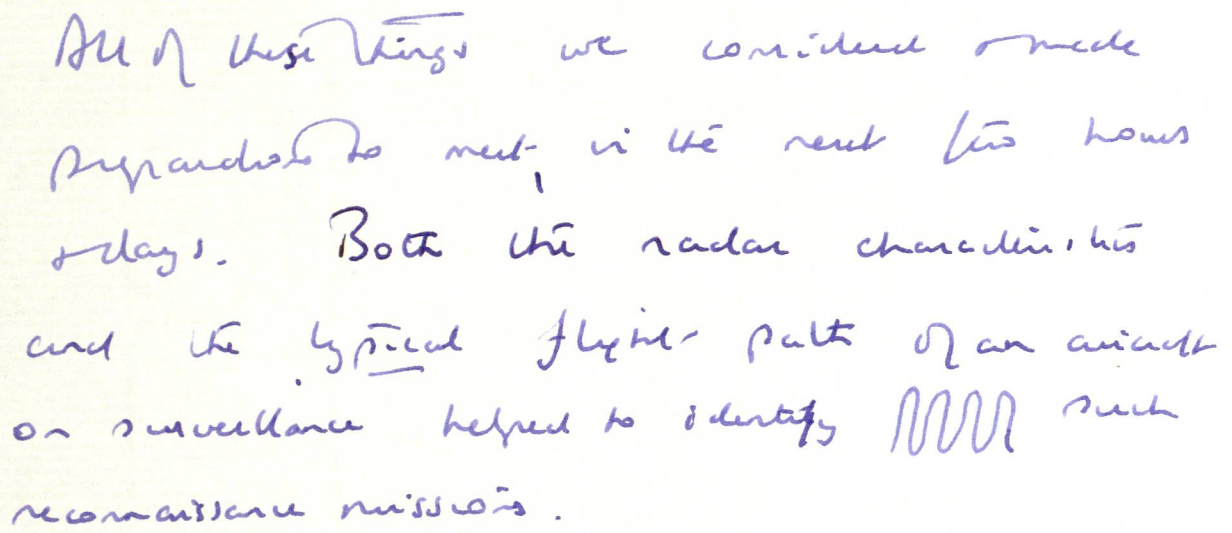 All of these things we considered & made
preparations to meet, in the next few hours
& days. Both the radar characteristics
and the typical flight path of an aircraft
on surveillance helped to identify such
reconnaissance missions.